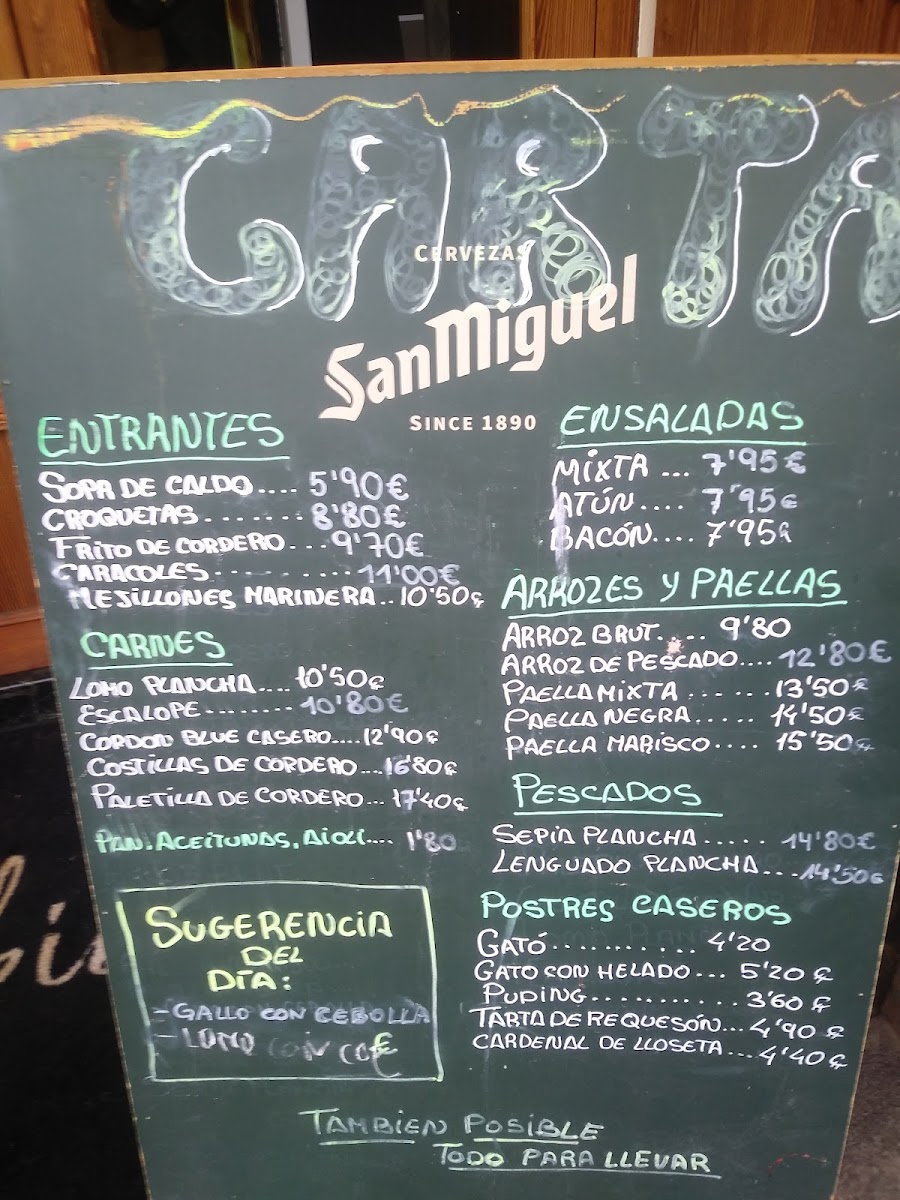 CARTA
CERVEZAS
SanMiguel
SINCE 1890
ENTRANTES
SOPA DE CALDO.... 5'90€
CROQUETAS....... 8'80€
FRITO DE CORDERO... 9'70€
CARACOLES.......... 11'00€
MEJILLONES MARINERA.. 10'50€
CARNES
LOMO PLANCHA.... 10'50€
ESCALOPE........ 10'80€
CORDON BLUE CASERO.... 12'90€
COSTILLAS DE CORDERO... 16'80€
PALETILLA DE CORDERO... 17'40€
PAN, ACEITUNAS, AIOLI.... 1'80
SUGERENCIA
DEL
DÍA:
- GALLO CON CEBOLLA
- LOMO CON
ENSALADAS
MIXTA ... 7'95€
ATÚN.... 7'95€
BACÓN.... 7'95€
ARROZES Y PAELLAS
ARROZ BRUT..... 9'80
ARROZ DE PESCADO.... 12'80€
PAELLA MIXTA ...... 13'50€
PAELLA NEGRA..... 14'50€
PAELLA MARISCO.... 15'50€
PESCADOS
SEPIA PLANCHA...... 14'80€
LENGUADO PLANCHA... 14'50€
POSTRES CASEROS
GATÓ.......... 4'20
GATO CON HELADO... 5'20€
PUDING.......... 3'60€
TARTA DE REQUESÓN... 4'90€
CARDENAL DE LLOSETA... 4'40€
TAMBIEN POSIBLE
TODO PARA LLEVAR